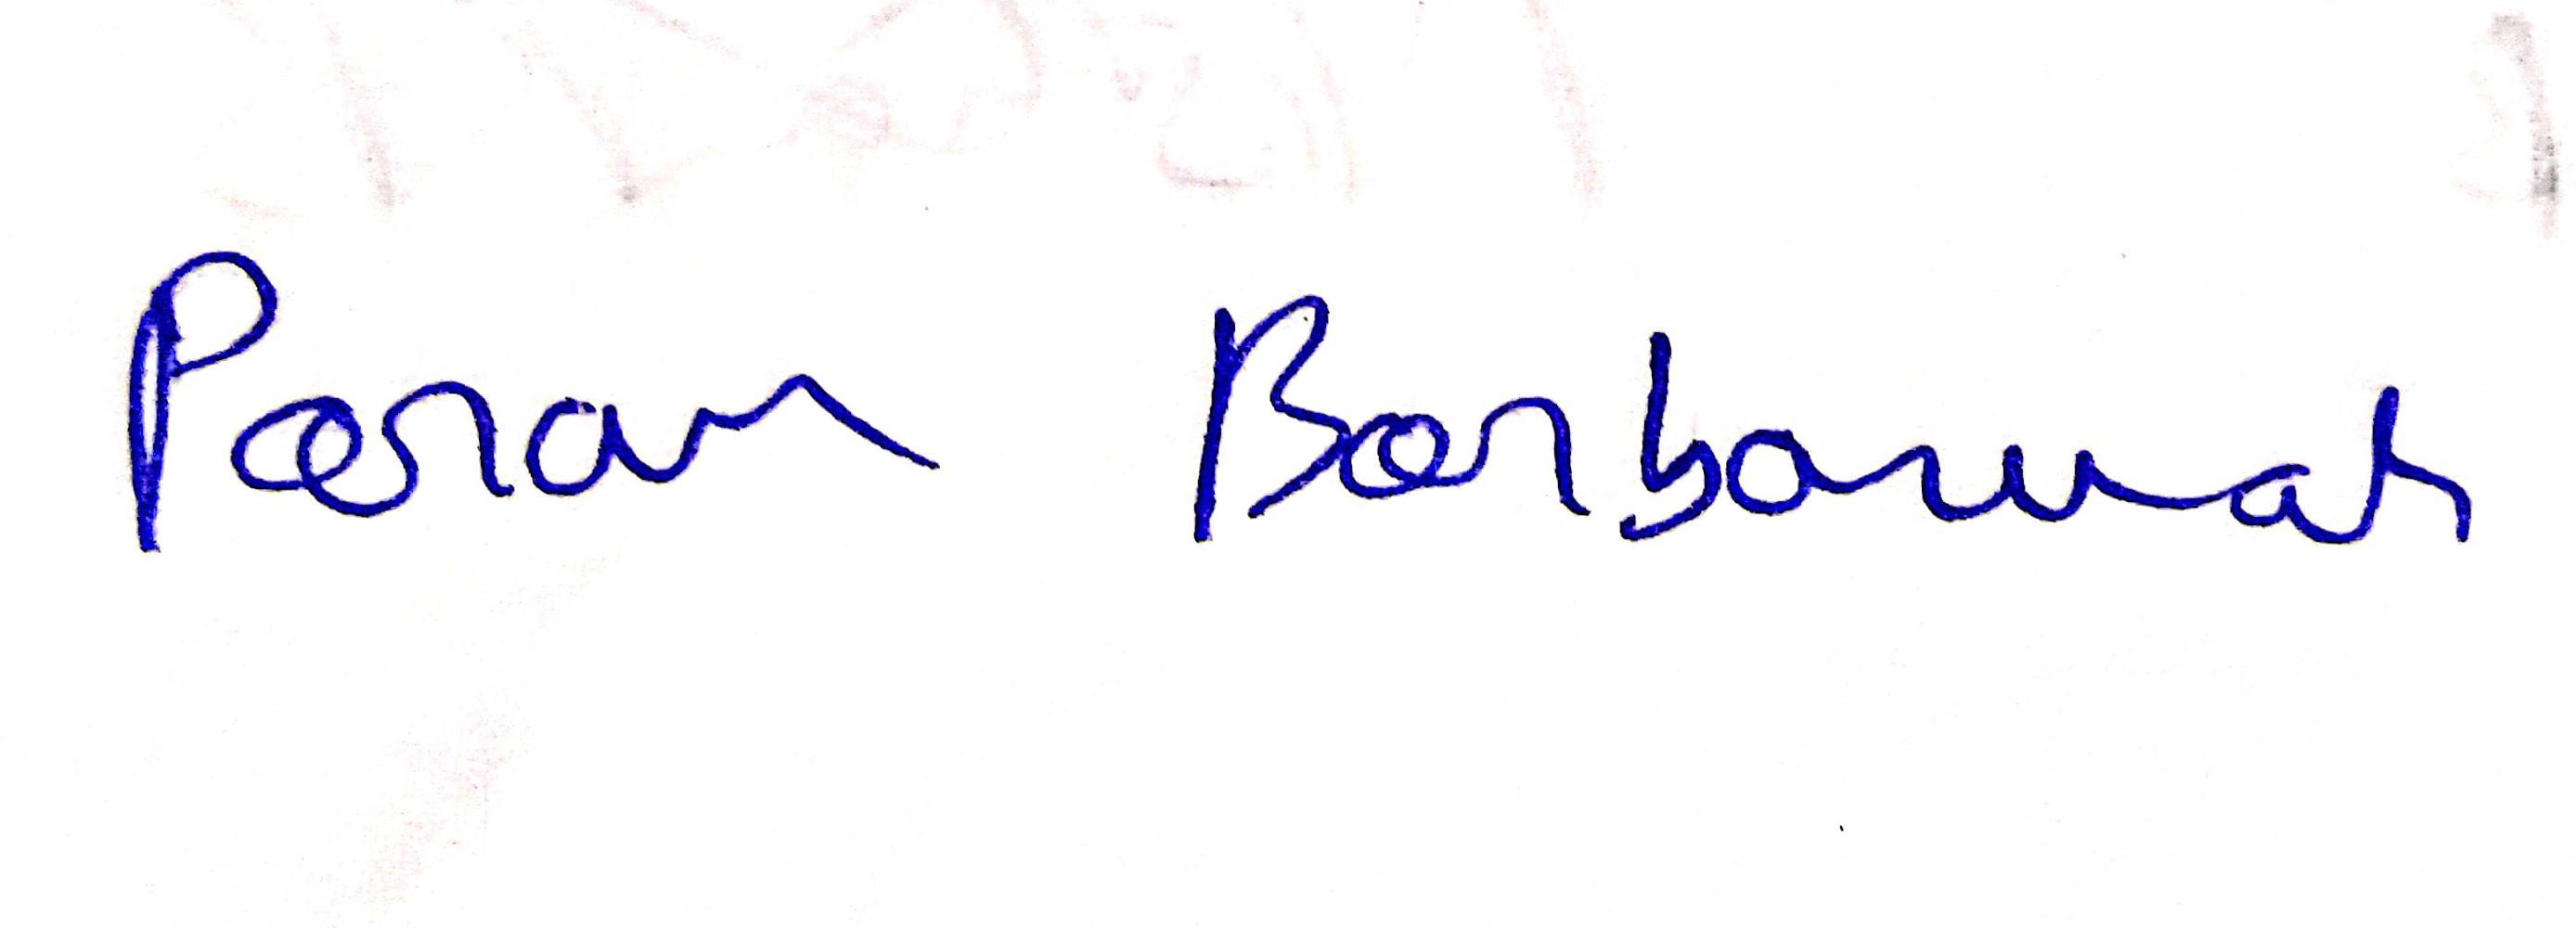 Paran Borbaruah